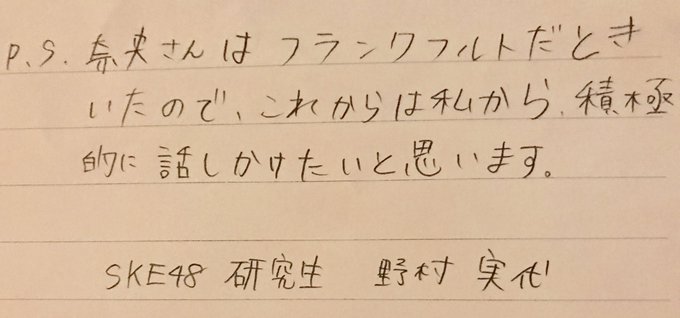 P.S. 奈央さんは フランクフルトだとき
いたので、これからは私から、積極
的に 話しかけたいと思います。
SKE48 研究生 野村 実代